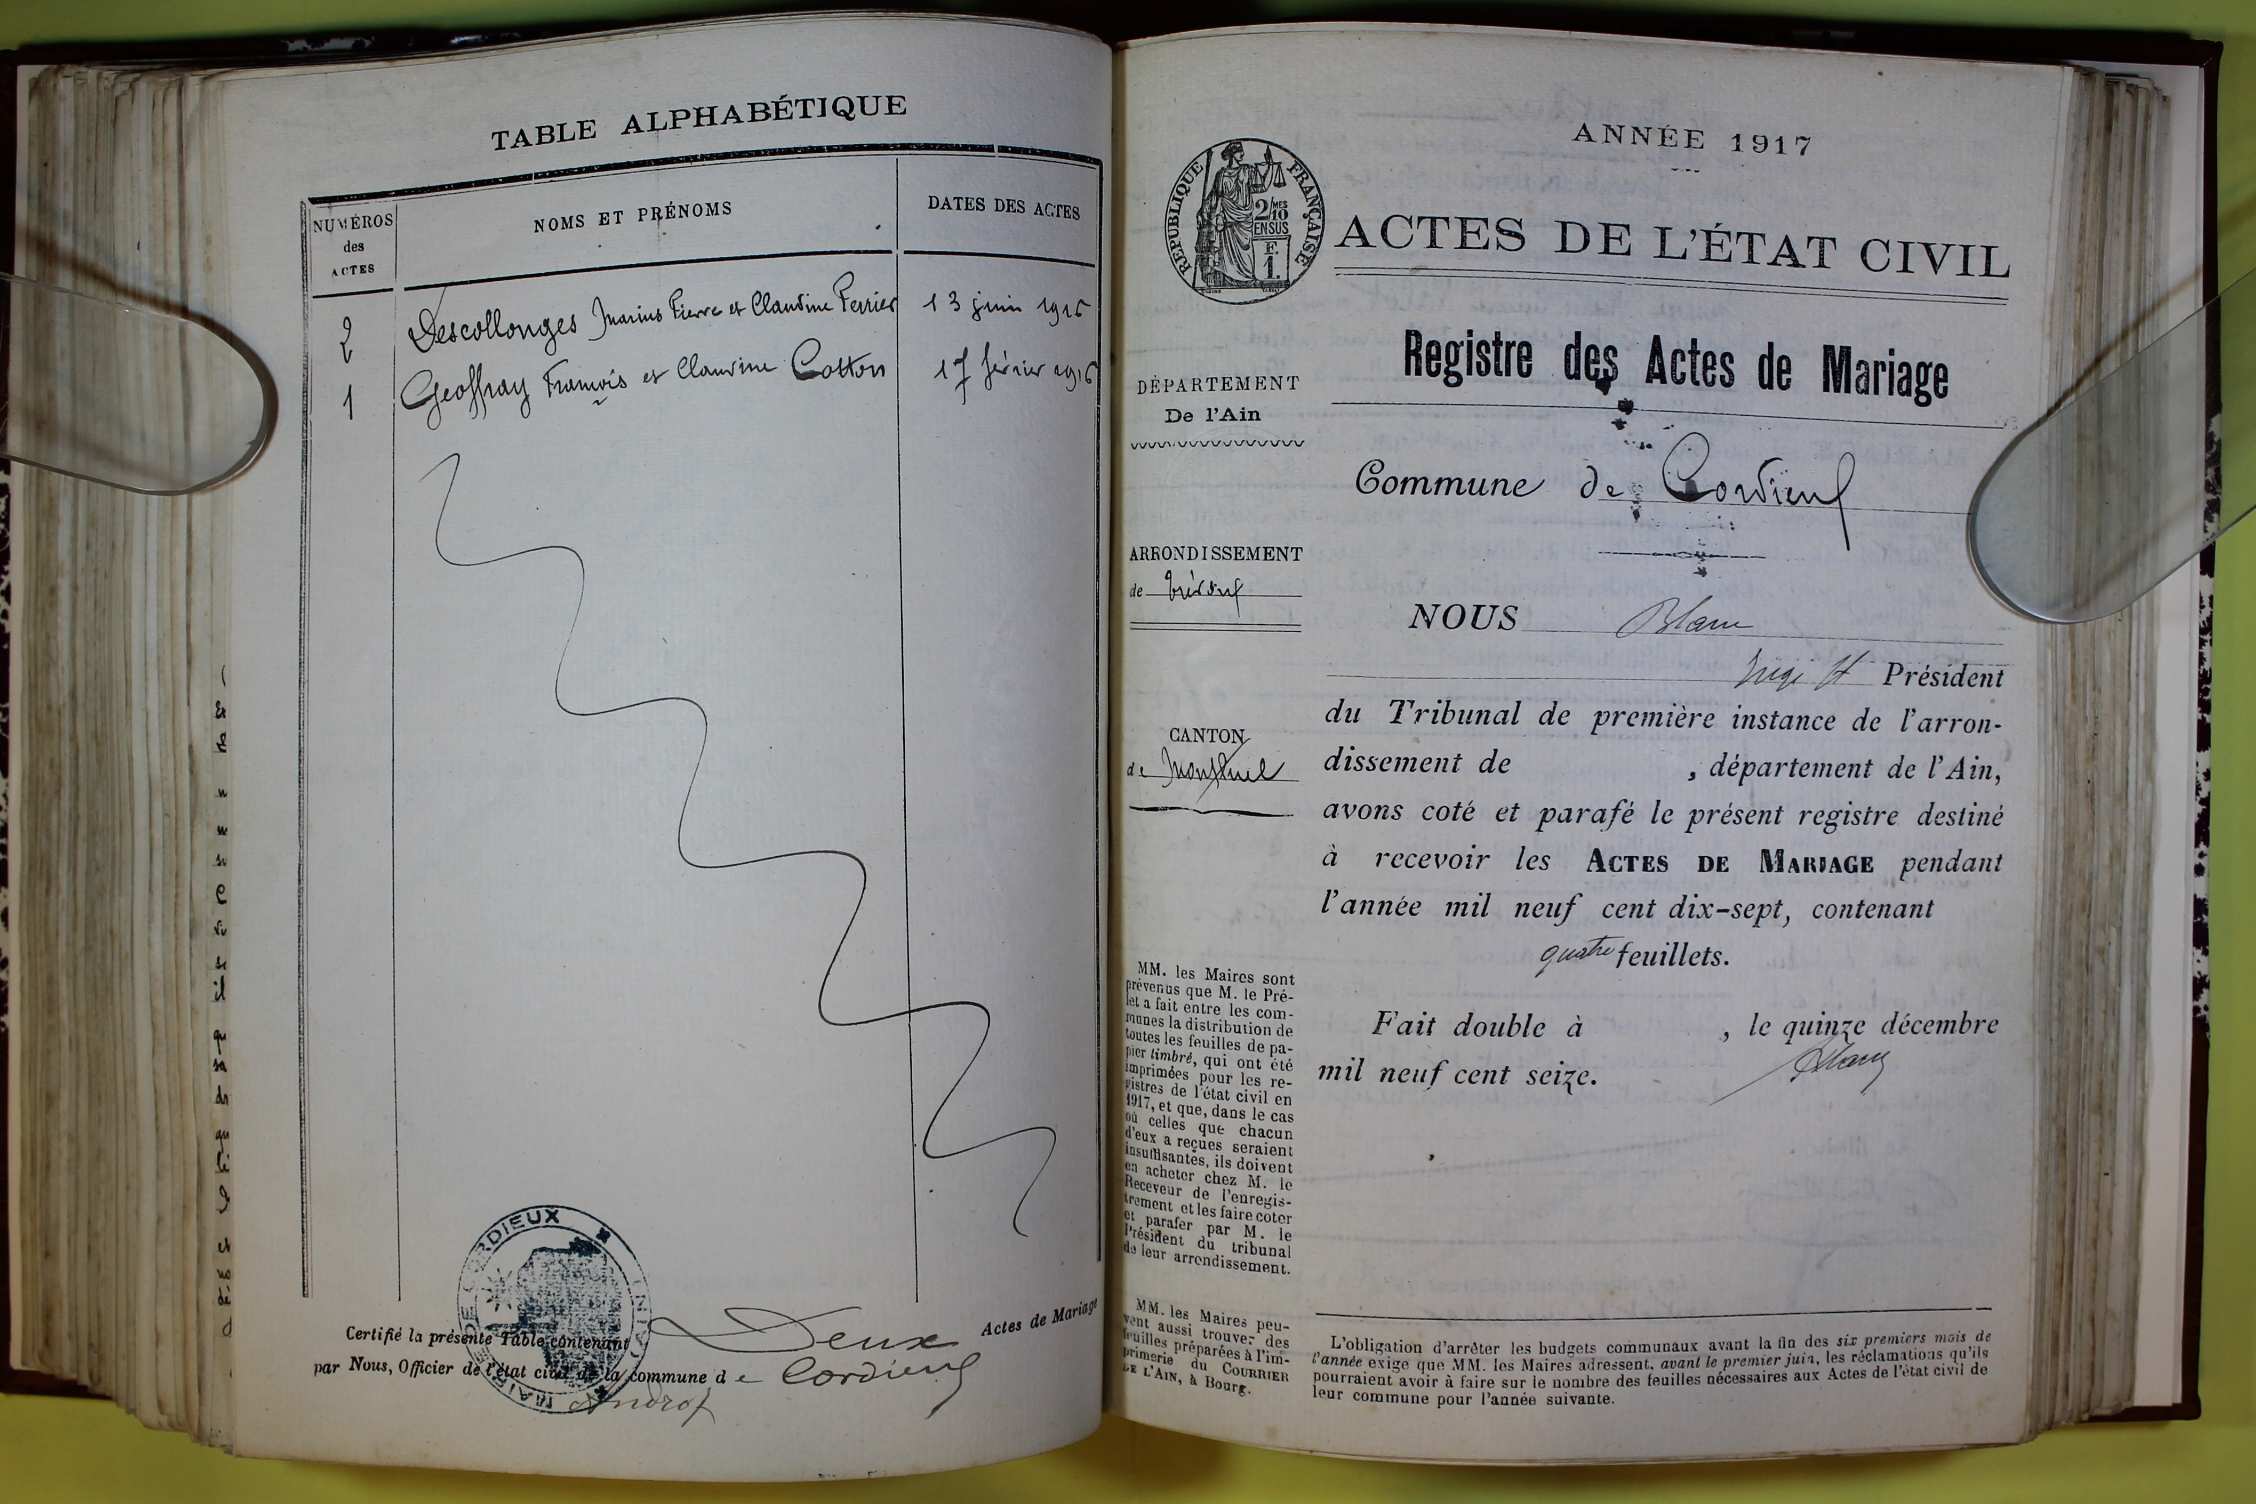 TABLE ALPHABÉTIQUE
NUMÉROS
des
ACTES
NOMS ET PRÉNOMS
DATES DES ACTES
2 Descollonges Marius Pierre et Claudine Perrier 13 juin 1916
1 Geoffray François et Claudine Cotton 17 février 1916
MAIRIE DE CORDIEUX
Certifié la présente Table contenant Deux Actes de Mariage
par Nous, Officier de l'état civil de la commune de Cordieux
ANNÉE 1917
RÉPUBLIQUE FRANÇAISE
2/MES
10
EN SUS
F.
1.
ACTES DE L'ÉTAT CIVIL
Registre des Actes de Mariage
DÉPARTEMENT
De l'Ain
Commune de Cordieux
ARRONDISSEMENT
de Trévoux
CANTON
de Montluel
NOUS Blanc
Juge ff Président
du Tribunal de première instance de l'arron-
dissement de , département de l'Ain,
avons coté et parafé le présent registre destiné
à recevoir les ACTES DE MARIAGE pendant
l'année mil neuf cent dix-sept, contenant
quatre feuillets.
Fait double à , le quinze décembre
mil neuf cent seize.
Blanc
MM. les Maires sont
prévenus que M. le Pré-
fet a fait entre les com-
munes la distribution de
toutes les feuilles de pa-
pier timbré, qui ont été
imprimées pour les re-
gistres de l'état civil en
1917, et que, dans le cas
où celles que chacun
d'eux a reçues seraient
insuffisantes, ils doivent
en acheter chez M. le
Receveur de l'enregis-
trement et les faire coter
et parafer par M. le
Président du tribunal
de leur arrondissement.
MM. les Maires peu-
vent aussi trouver des
feuilles préparées à l'im-
primerie du COURRIER
DE L'AIN, à Bourg.
L'obligation d'arrêter les budgets communaux avant la fin des six premiers mois de
l'année exige que MM. les Maires adressent, avant le premier juin, les réclamations qu'ils
pourraient avoir à faire sur le nombre des feuilles nécessaires aux Actes de l'état civil de
leur commune pour l'année suivante.